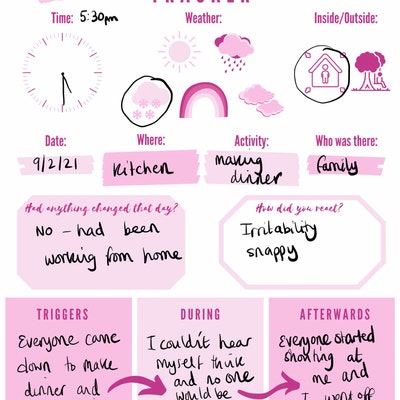 TRACKER
Time: 5:30pm
Weather:
Inside/Outside:
Date:
Where:
Activity:
Who was there:
9/2/21
Kitchen
making
dinner
family
Had anything changed that day?
No - had been
working from home
How did you react?
Irritability
snappy
TRIGGERS
Everyone came
down to make
dinner and
DURING
I couldn't hear
myself think
and no one
would be
AFTERWARDS
Everyone started
shouting at
me and
I went off